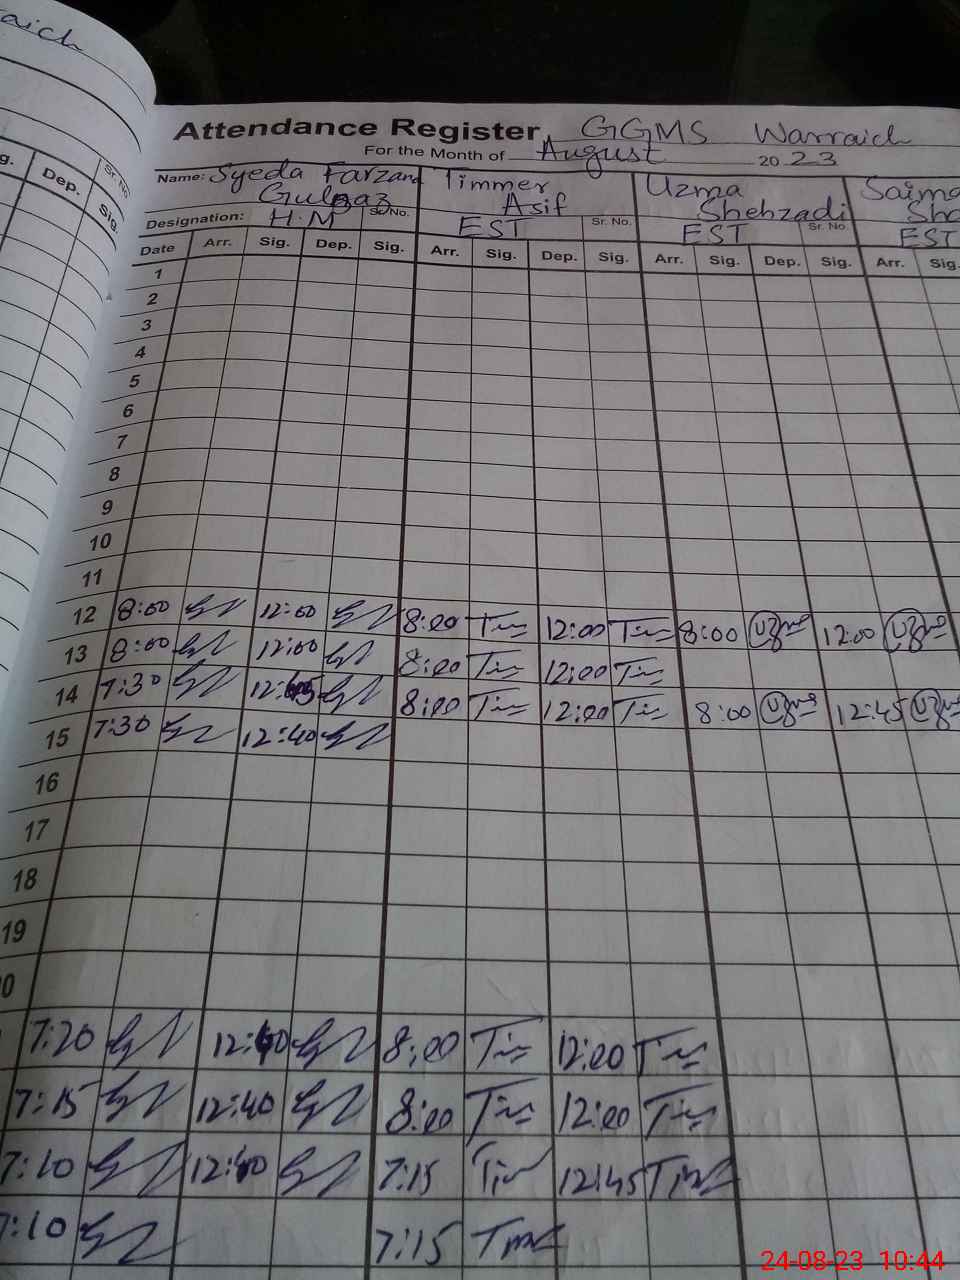 aich
Attendance Register, GGMS Warraich
For the Month of August 2023
g. Dep. Sr. No Sig.
Name: Syeda Farzana Timmer Uzma Saima
Gulnaz Asif Shehzadi Sha
Designation: H.M Sr. No. EST Sr. No. EST Sr. No. EST
Date Arr. Sig. Dep. Sig. Arr. Sig. Dep. Sig. Arr. Sig. Dep. Sig. Arr. Sig.
1
2
3
4
5
6
7
8
9
10
11
12 8:00 12:00 8:00 Tim 12:00 Tim 8:00 Uzma 12:00 Uzma
13 8:00 12:00 8:00 Tim 12:00 Tim
14 7:30 12:45 8:00 Tim 12:00 Tim 8:00 Uzma 12:45 Uzma
15 7:30 12:40
16
17
18
19
0
7:20 12:40 8:00 Tim 12:00 Tim
7:15 12:40 8:00 Tim 12:00 Tim
7:10 12:40 7:15 Tim 12:45 Tim
7:10 7:15 Tim
24-08-23 10:44